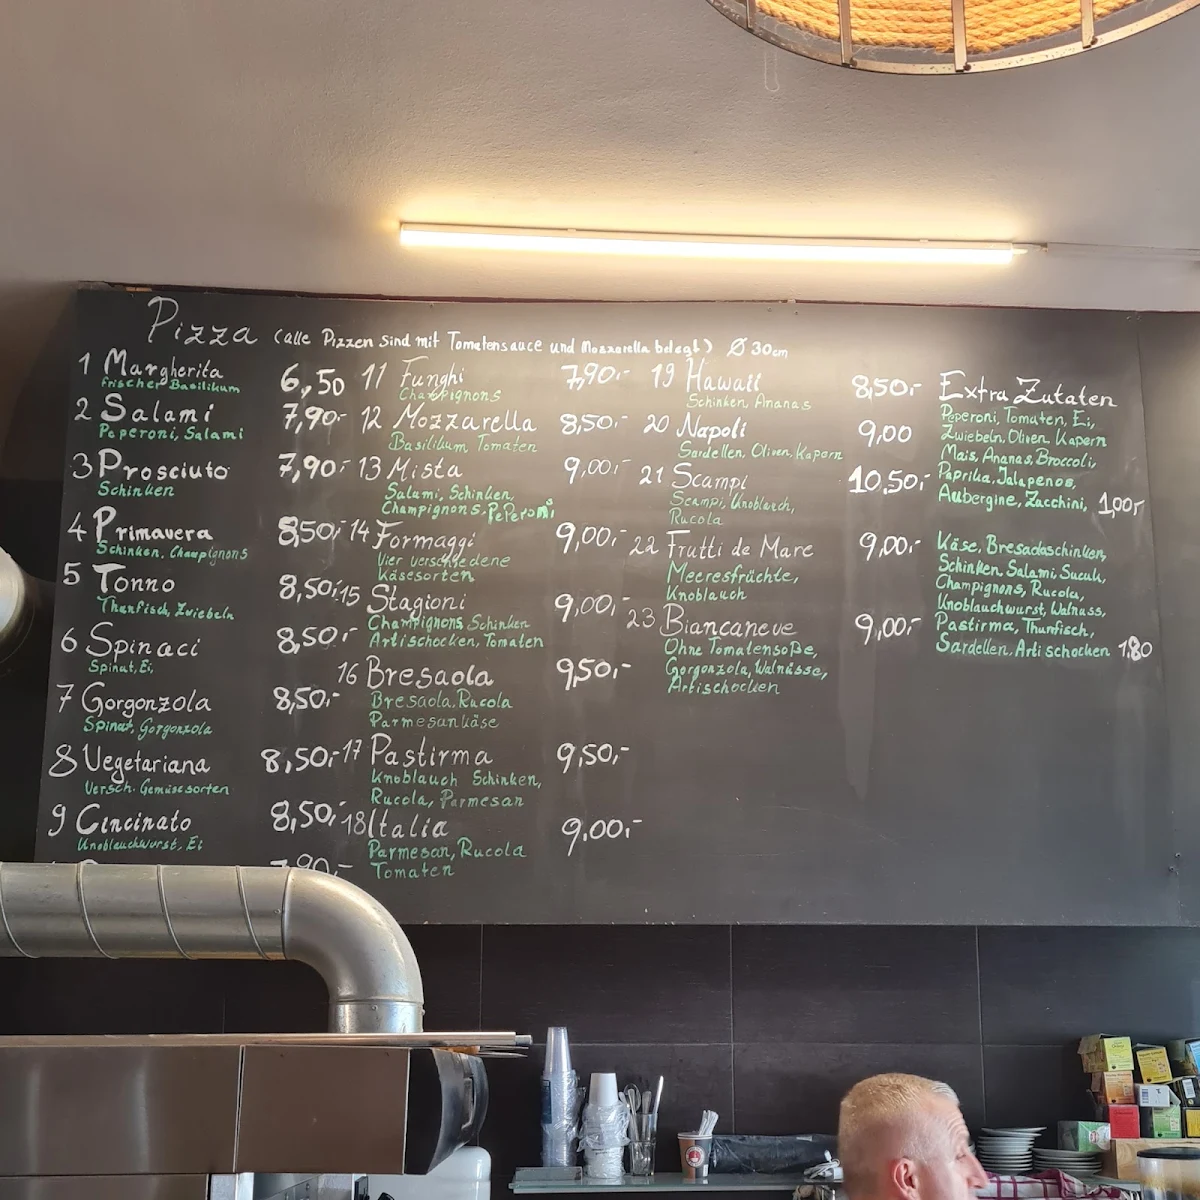 Pizza (alle Pizzen sind mit Tomatensauce und Mozzarella belegt) Ø 30cm
1 Margherita 6,50
frischer Basilikum
2 Salami 7,90-
Peperoni, Salami
3 Prosciuto 7,90-
Schinken
4 Primavera 8,50-
Schinken, Champignons
5 Tonno 8,50-
Thunfisch, Zwiebeln
6 Spinaci 8,50-
Spinat, Ei,
7 Gorgonzola 8,50-
Spinat, Gorgonzola
8 Vegetariana 8,50-
Versch. Gemüsesorten
9 Cincinato 8,50-
Knoblauchwurst, Ei
7,90,-
11 Funghi 7,90.-
Champignons
12 Mozzarella 8,50,-
Basilikum Tomaten
13 Mista 9,00,-
Salami, Schinken,
Champignons, Peperoni
14 Formaggi 9,00,-
Vier verschiedene
Käsesorten
15 Stagioni 9,00,-
Champignons Schinken
Artischocken, Tomaten
16 Bresaola 9,50,-
Bresaola, Rucola
Parmesankäse
17 Pastirma 9,50,-
Knoblauch Schinken,
Rucola, Parmesan
18 Italia 9,00,-
Parmesan, Rucola
Tomaten
19 Hawaii 8,50,-
Schinken, Ananas
20 Napoli 9,00
Sardellen, Oliven, Kapern
21 Scampi 10,50,-
Scampi, Knoblauch,
Rucola
22 Frutti de Mare 9,00,-
Meeresfrüchte,
Knoblauch
23 Biancaneve 9,00,-
Ohne Tomatensoße,
Gorgonzola, Walnüsse,
Artischocken
Extra Zutaten
Peperoni, Tomaten, Ei,
Zwiebeln, Oliven, Kapern
Mais, Ananas, Broccoli,
Paprika, Jalapenos,
Aubergine, Zucchini, 1,00,-
Käse, Bresaolaschinken,
Schinken, Salami, Sucuk,
Champignons, Rucola,
Knoblauchwurst, Walnuss,
Pastirma, Thunfisch,
Sardellen, Artischocken 1,80